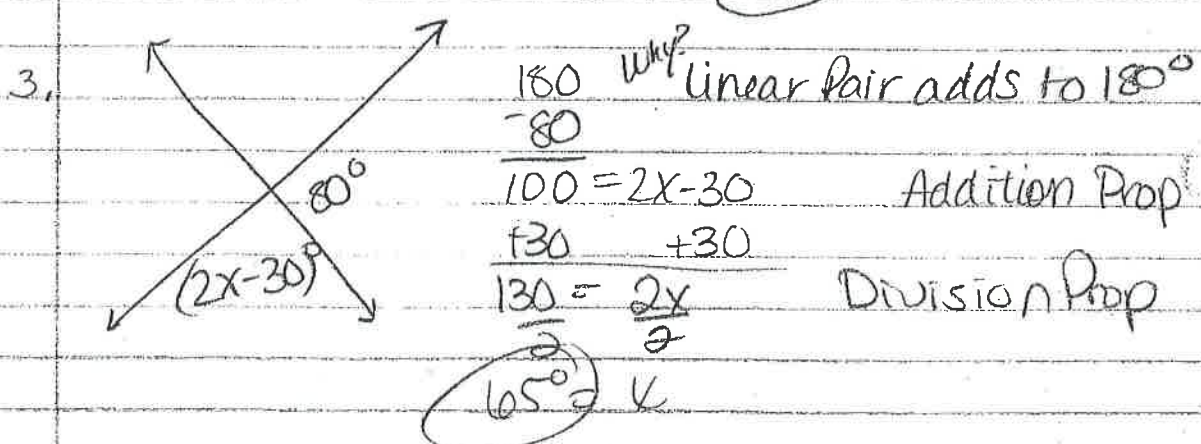 3.
80°
(2x-30)°
180 Why? Linear Pair adds to 180°
-80
100 = 2x-30 Addition Prop
+30 +30
130 = 2x Division Prop
2 2
65° = x